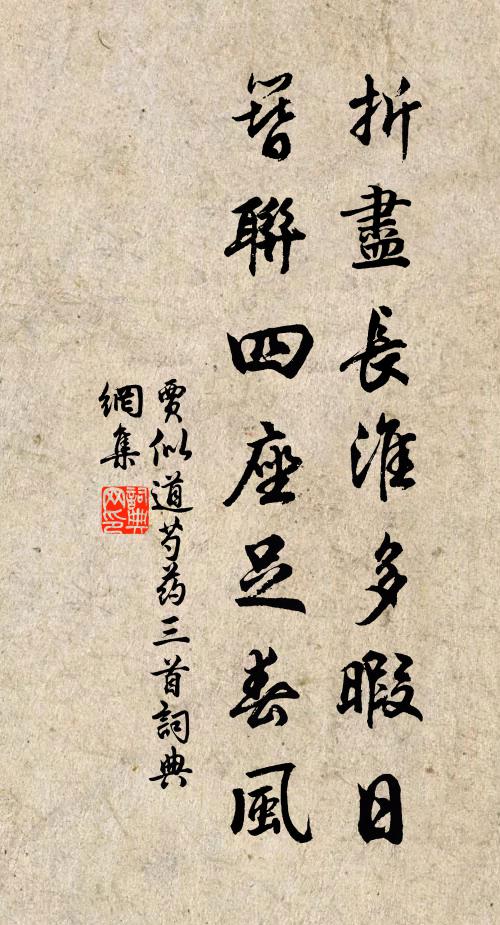 折盡長淮多暇日
簪聯四座足春風
賈似道芍药三首詞典
網集
詞典
网印